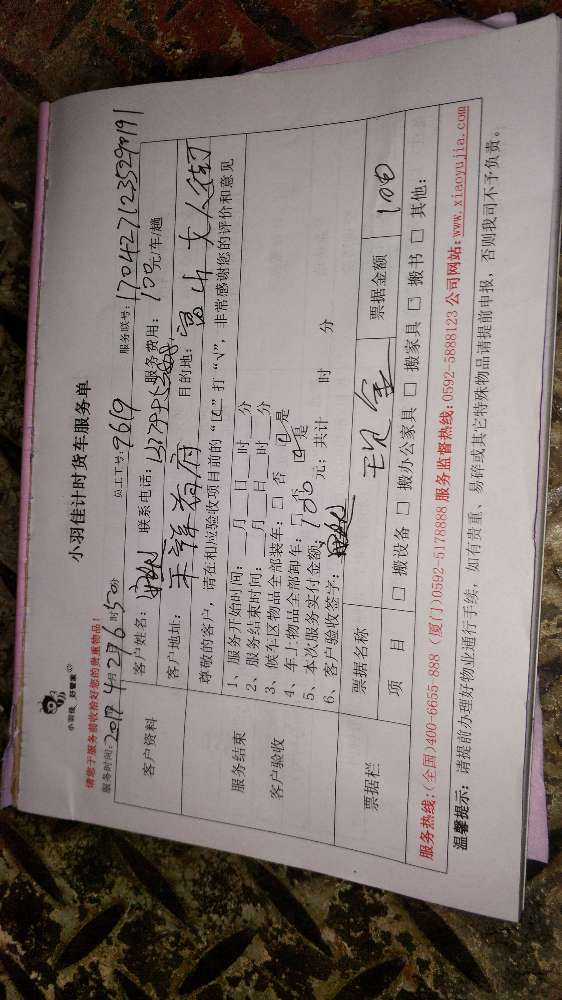 小羽佳 好管家
小羽佳计时货车服务单
请您于服务前收拾好您的贵重物品!
服务时间: 2017年4月27日 时50分 员工工号: 9619 服务联号: 17042712352990191
客户资料
客户姓名: 联系电话: 服务费用: 100元/车/趟
客户地址: 目的地:
服务结束
客户验收
尊敬的客户,请在相应验收项目前的“☑”打“√”,非常感谢您的评价和意见
1、服务开始时间:___月___日___时___分
2、服务结束时间:___月___日___时___分
3、候车区物品全部装车:□ 否 ☑ 是
4、车上物品全部卸车:□ 否 ☑ 是
5、本次服务实付金额: 100 元;共计 时 分
6、客户验收签字:
票据栏
票据名称 现金 票据金额 100
项 目 □ 搬设备 □ 搬办公家具 □ 搬家具 □ 搬书 □ 其他:
服务热线:(全国)400-6655-888 (厦门)0592-5178888 服务监督热线:0592-5888123 公司网站:www.xiaoyujia.com
温馨提示: 请提前办理好物业通行手续,如有贵重、易碎或其它特殊物品请提前申报,否则我司不予负责。